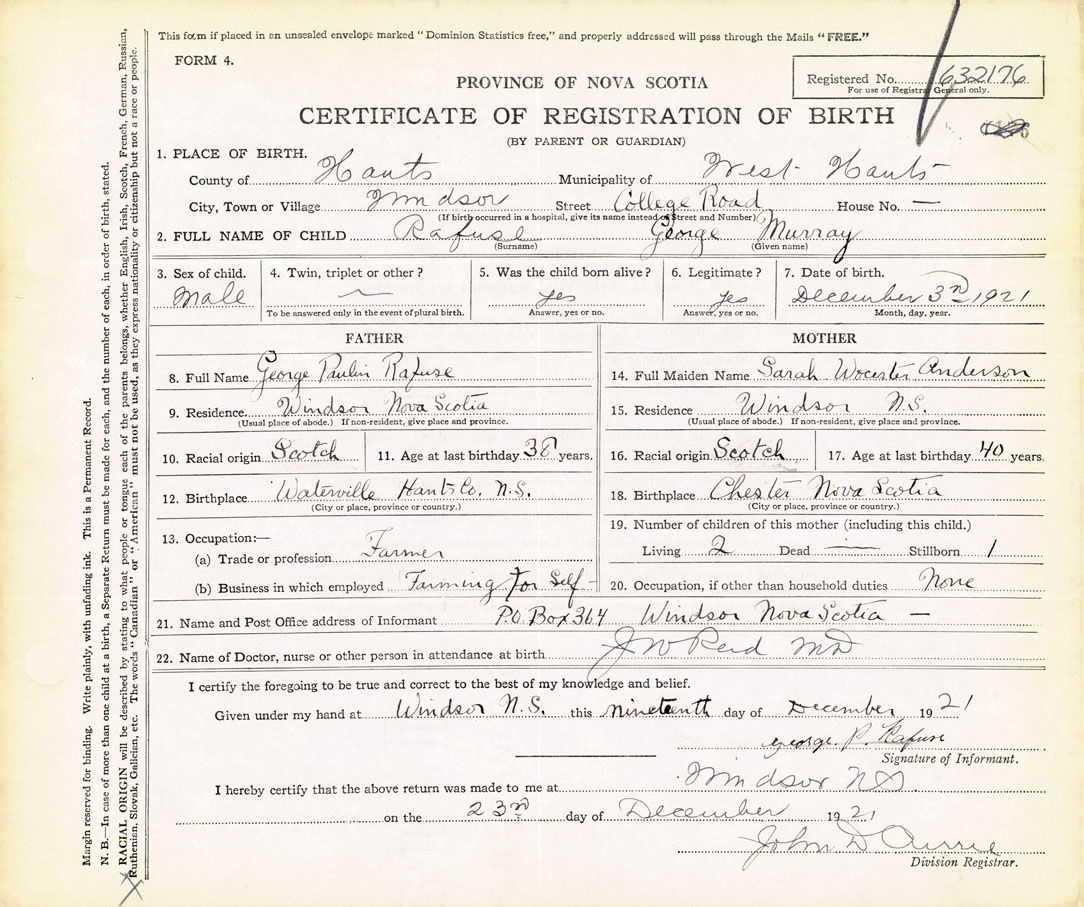 This form if placed in an unsealed envelope marked "Dominion Statistics free," and properly addressed will pass through the Mails "FREE."
FORM 4.
Registered No. 632176
For use of Registrar General only.
PROVINCE OF NOVA SCOTIA
CERTIFICATE OF REGISTRATION OF BIRTH
(BY PARENT OR GUARDIAN)
1. PLACE OF BIRTH.
County of Hants Municipality of West Hants
City, Town or Village Windsor Street College Road House No. —
(If birth occurred in a hospital, give its name instead of Street and Number)
2. FULL NAME OF CHILD Rafuse George Murray
(Surname) (Given name)
3. Sex of child. 4. Twin, triplet or other? 5. Was the child born alive? 6. Legitimate? 7. Date of birth.
Male — yes yes December 3rd 1921
To be answered only in the event of plural birth. Answer, yes or no. Answer, yes or no. Month, day, year.
FATHER
8. Full Name George Paulin Rafuse
9. Residence Windsor Nova Scotia
(Usual place of abode.) If non-resident, give place and province.
10. Racial origin Scotch 11. Age at last birthday 38 years.
12. Birthplace Waterville Hants Co. N.S.
(City or place, province or country.)
13. Occupation:—
(a) Trade or profession Farmer
(b) Business in which employed Farming for Self -
MOTHER
14. Full Maiden Name Sarah Wocester Anderson
15. Residence Windsor N.S.
(Usual place of abode.) If non-resident, give place and province.
16. Racial origin Scotch 17. Age at last birthday 40 years.
18. Birthplace Chester Nova Scotia
(City or place, province or country.)
19. Number of children of this mother (including this child.)
Living 2 Dead — Stillborn 1
20. Occupation, if other than household duties None
21. Name and Post Office address of Informant P.O. Box 364 Windsor Nova Scotia —
22. Name of Doctor, nurse or other person in attendance at birth J W Reid MD
I certify the foregoing to be true and correct to the best of my knowledge and belief.
Given under my hand at Windsor N.S. this nineteenth day of December 1921
George. P. Rafuse
Signature of Informant.
I hereby certify that the above return was made to me at Windsor NS.
on the 23rd day of December 1921
John D Currie
Division Registrar.
Margin reserved for binding. Write plainly, with unfading ink. This is a Permanent Record.
N. B.—In case of more than one child at a birth, a Separate Return must be made for each, and the number of each, in order of birth, stated.
RACIAL ORIGIN will be described by stating to what people or tongue each of the parents belongs, whether English, Irish, Scotch, French, German, Russian,
Ruthenian, Slovak, Galician, etc. The words "Canadian" or "American" must not be used, as they express nationality or citizenship but not a race or people.